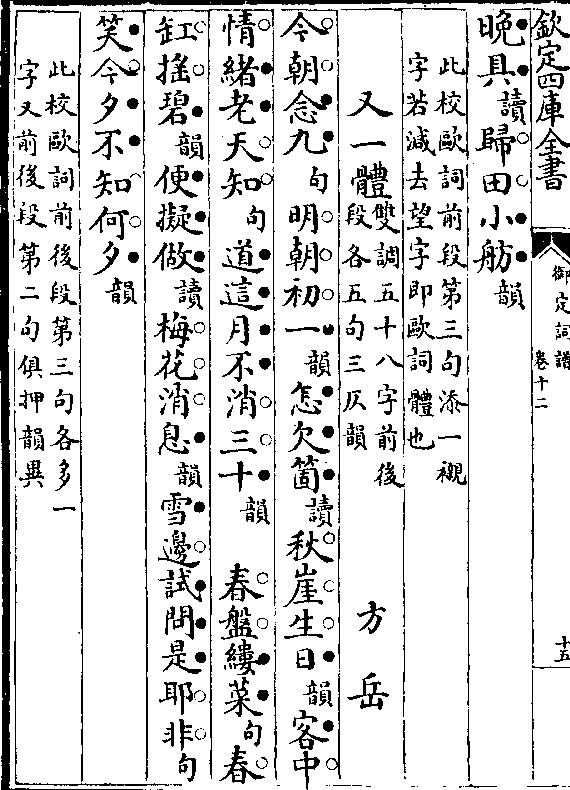 欽定四庫全書
御定詞譜
卷十二
十五
晚具讀歸田小舫韻
此校歐詞前段第三句添一襯
字若減去望字即歐詞體也
又一體雙調五十八字前後
段各五句三仄韻
方岳
今朝念九句明朝初一韻怎欠箇讀秋崖生日韻客中
情緒老天知句道這月不消三十韻 春盤縷菜句春
缸搖碧韻便擬做讀梅花消息韻雪邊試問是耶非句
笑今夕不知何夕韻
此校歐詞前後段第三句各多一
字又前後段第二句俱押韻異